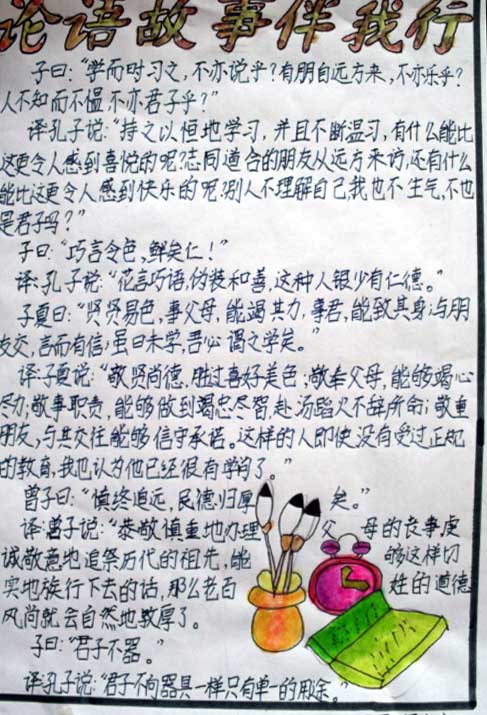 论语故事伴我行
子曰:“学而时习之,不亦说乎?有朋自远方来,不亦乐乎?
人不知而不愠,不亦君子乎?”
译:孔子说:“持之以恒地学习,并且不断温习,有什么能比
这更令人感到喜悦的呢?志同道合的朋友从远方来访,还有什么
能比这更令人感到快乐的呢?别人不理解自己,我也不生气,不也
是君子吗?”
子曰:“巧言令色,鲜矣仁!”
译:孔子说:“花言巧语,伪装和善,这种人很少有仁德。”
子夏曰:“贤贤易色,事父母,能竭其力,事君,能致其身;与朋
友交,言而有信;虽曰未学,吾必谓之学矣。”
译:子夏说:“敬贤尚德,胜过喜好美色;敬奉父母,能够竭心
尽力;敬事职责,能够做到竭忠尽智,赴汤蹈火不辞所命;敬重
朋友,与其交往能够信守承诺。这样的人即使没有受过正规
的教育,我也认为他已经很有学问了。”
曾子曰:“慎终追远,民德归厚矣。”
译:曾子说:“恭敬慎重地办理父母的丧事,虔
诚敬意地追祭历代的祖先,能够这样切
实地施行下去的话,那么老百姓的道德
风尚就会自然地敦厚了。
子曰:“君子不器。”
译:孔子说:“君子不向器具一样只有单一的用途。”